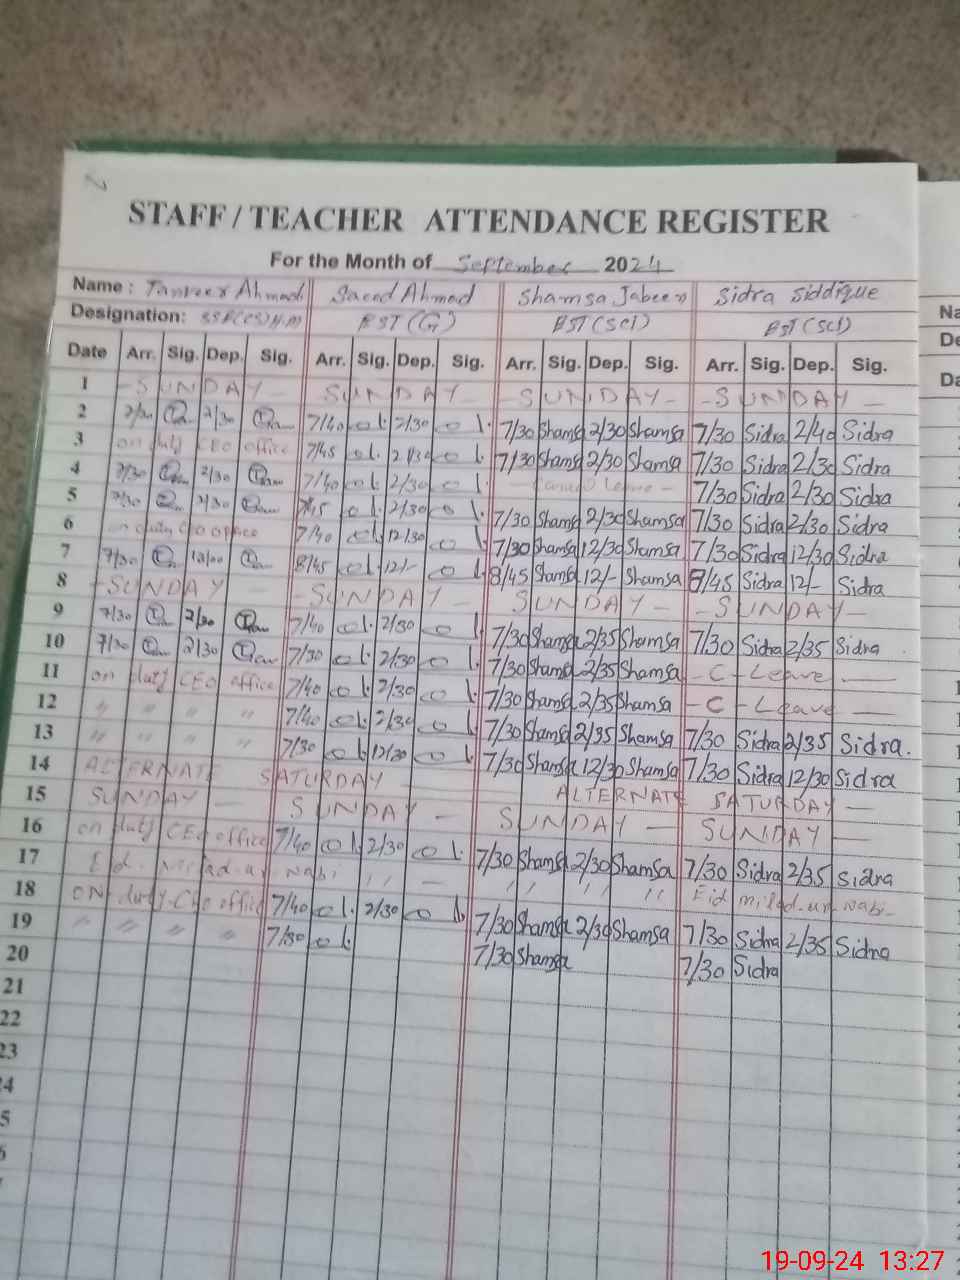 STAFF / TEACHER ATTENDANCE REGISTER
For the Month of September 2024
Name : Tanveer Ahmad Saeed Ahmad Shamsa Jabeen Sidra Siddique
Designation: EST (G) EST (SCI) EST (SCI)
Date Arr. Sig. Dep. Sig. Arr. Sig. Dep. Sig. Arr. Sig. Dep. Sig. Arr. Sig. Dep. Sig.
1 - SUNDAY - SUNDAY - - SUNDAY - - SUNDAY -
2 7/30 2/30 7/40 2/30 7/30 Shamsa 2/30 Shamsa 7/30 Sidra 2/40 Sidra
3 on duty CEO office 7/45 2/30 7/30 Shamsa 2/30 Shamsa 7/30 Sidra 2/30 Sidra
4 7/30 2/30 7/40 2/30 - Leave - 7/30 Sidra 2/30 Sidra
5 7/30 2/30 2/30 7/30 Shamsa 2/30 Shamsa 7/30 Sidra 2/30 Sidra
6 on duty CEO office 7/40 12/30 7/30 Shamsa 12/30 Shamsa 7/30 Sidra 12/30 Sidra
7 7/30 12/00 8/45 12/- 8/45 Shamsa 12/- Shamsa 8/45 Sidra 12/- Sidra
8 - SUNDAY - - SUNDAY - SUNDAY - - SUNDAY -
9 7/30 2/30 7/40 2/30 7/30 Shamsa 2/35 Shamsa 7/30 Sidra 2/35 Sidra
10 7/30 2/30 7/30 2/30 7/30 Shamsa 2/35 Shamsa - C - Leave -
11 on duty CEO office 7/40 2/30 7/30 Shamsa 2/35 Shamsa - C - Leave -
12 " " " " 7/40 2/30 7/30 Shamsa 2/35 Shamsa 7/30 Sidra 2/35 Sidra.
13 " " " " 7/30 12/30 7/30 Shamsa 12/30 Shamsa 7/30 Sidra 12/30 Sidra
14 ALTERNATE SATURDAY - ALTERNATE SATURDAY -
15 SUNDAY - SUNDAY - SUNDAY - SUNDAY -
16 on duty CEO office 7/40 2/30 7/30 Shamsa 2/30 Shamsa 7/30 Sidra 2/35 Sidra
17 Eid - milad-un nabi " - " " " Eid milad-un nabi -
18 ON duty CEO office 7/40 2/30 7/30 Shamsa 2/30 Shamsa 7/30 Sidra 2/35 Sidra
19 " " " " 7/30 7/30 Shamsa 7/30 Sidra
20
21
22
23
19-09-24 13:27